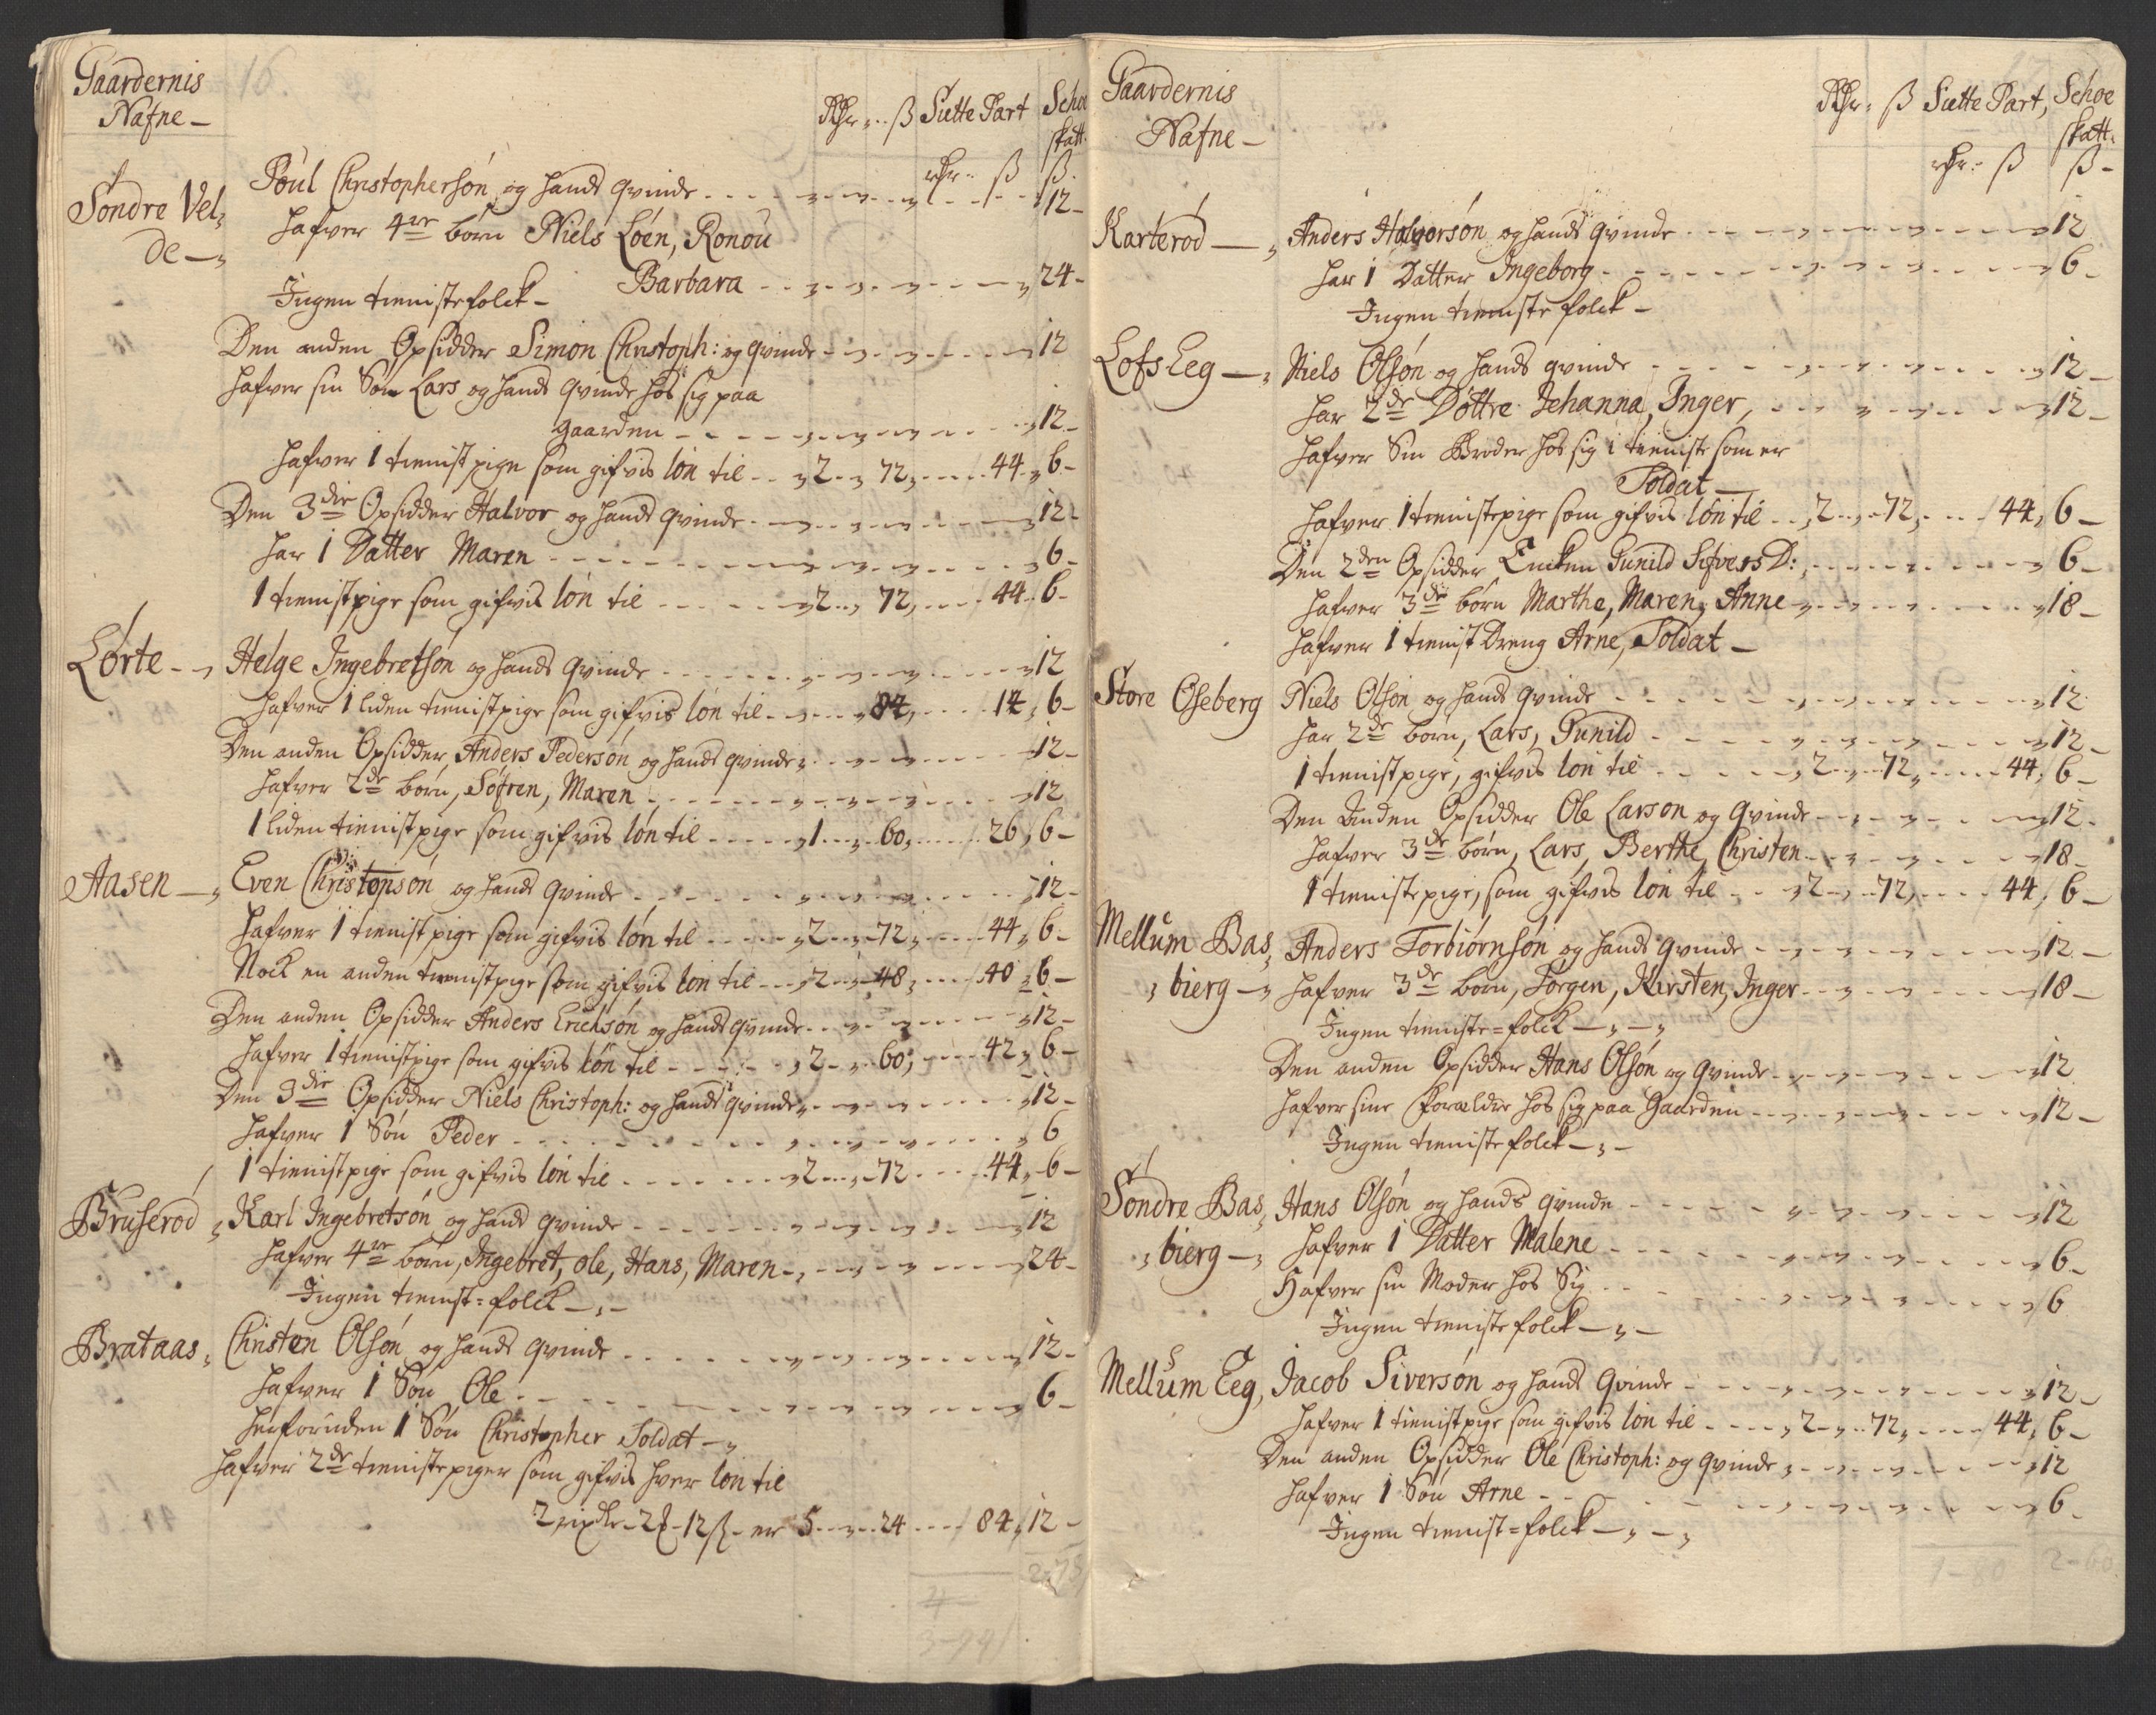 16.
Gaardernis
Nafne -
Rdr : ß Siette Part Schoe
skatt
rdr : ß ß
Söndre Vel,
de -
Poul Christophersön og hands qvinde 12 -
hafver 4re börn Niels Loen, Ronou
Barbara 24 -
Ingen tienistefolck -
Den anden Opsidder Simon Christoph: og qvinde 12
hafver sin Sön Lars og hands qvinde hos sig paa
gaarden 12 -
hafver 1 tienistpige som gifvis lön til 2 72 44 6 -
Den 3die Opsidder Halvor og hands qvinde 12 -
har 1 Datter Maren 6 -
1 tienistpige som gifvis lön til 2 72 44 6 -
Lörte - Helge Ingebretsön og hands qvinde 12
hafver 1 liden tienistpige som gifvis lön til 84 14 6 -
Den anden Opsidder Anders Pedersön og hands qvinde 12 -
hafver 2de börn, Söfren, Maren 12
1 liden tienistpige som gifvis lön til 1 60 26 6 -
Aasen - Even Christopsön og hands qvinde 12 -
hafver 1 tienistpige som gifvis lön til 2 72 44 6 -
Nock en anden tienistpige som gifvis lön til 2 48 40 6 -
Den anden Opsidder Anders Erichsön og hands qvinde 12 -
hafver 1 tienistpige som gifvis lön til 2 60 42 6 -
Den 3die Opsidder Niels Christoph: og hands qvinde 12 -
hafver 1 Sön Peder 6
1 tienistpige som gifvis lön til 2 72 44 6 -
Bruseröd Karl Ingebretsön og hands qvinde 12
hafver 4re börn, Ingebret, ole, Hans, Maren 24 -
Ingen tienist=folck -
Brataas, Christen Olsön og hands qvinde 12 -
hafver 1 Sön Ole 6 -
herforuden 1 Sön Christopher Soldat -
hafver 2de tienistepiger som gifvis hver lön til
2 rixdr - 2 - 12 ß - er 5 24 84 12 -
2-75
4
3-94
Gaardernis
Nafne -
Rdr : ß Siette Part, Schoe
skatt
rdr : ß ß -
Karteröd - Anders Halvorsön og hands qvinde 12
har 1 Datter Ingeborg 6 -
Ingen tieniste folck -
Lofs Eeg - Niels Olsön og hands qvinde 12 -
har 2de Döttre Johanna, Inger, 12 -
hafver Sin Broder hos sig i tieniste som er
Soldat -
hafver 1 tienistepige som gifvis lön til 2 72 44 6 -
Den 2den Opsidder Encken Gunild Sifvers D: 6 -
hafver 3de börn Marthe, Maren, Anne 18 -
hafver 1 tienist Dreng Arne, Soldat -
Store Oseberg Niels Olsön og hands qvinde 12
har 2de börn, Lars, Gunild 12 -
1 tienistpige, gifvis lön til 2 72 44 6 -
Den Anden Opsidder Ole Larsön og qvinde 12 -
hafver 3de börn, Lars, Berthe, Christen 18 -
1 tienistepige, som gifvis lön til 2 72 44 6 -
Mellum Bas, Anders Torbiörnsön og hands qvinde 12 -
bierg - hafver 3de börn, Jörgen, Kirsten, Inger 18 -
Ingen tieniste=folck -
Den anden Opsidder Hans Olsön og qvinde 12
hafver sine Forældre hos sig paa Gaarden 12 -
Ingen tieniste folck -
Söndre Bas, Hans Olsön og hands qvinde 12
bierg - hafver 1 Datter Malene 6 -
Hafver sin Moder hos Sig 6
Ingen tieniste folck -
Mellum Eeg, Jacob Siversön og hands Qvinde 12 -
hafver 1 tienistpige som gifvis lön til 2 72 44 6 -
Den anden Opsidder Ole Christoph: og qvinde 12
hafver 1 Sön Arne 6 -
Ingen tienist=folck -
1-80 2-60